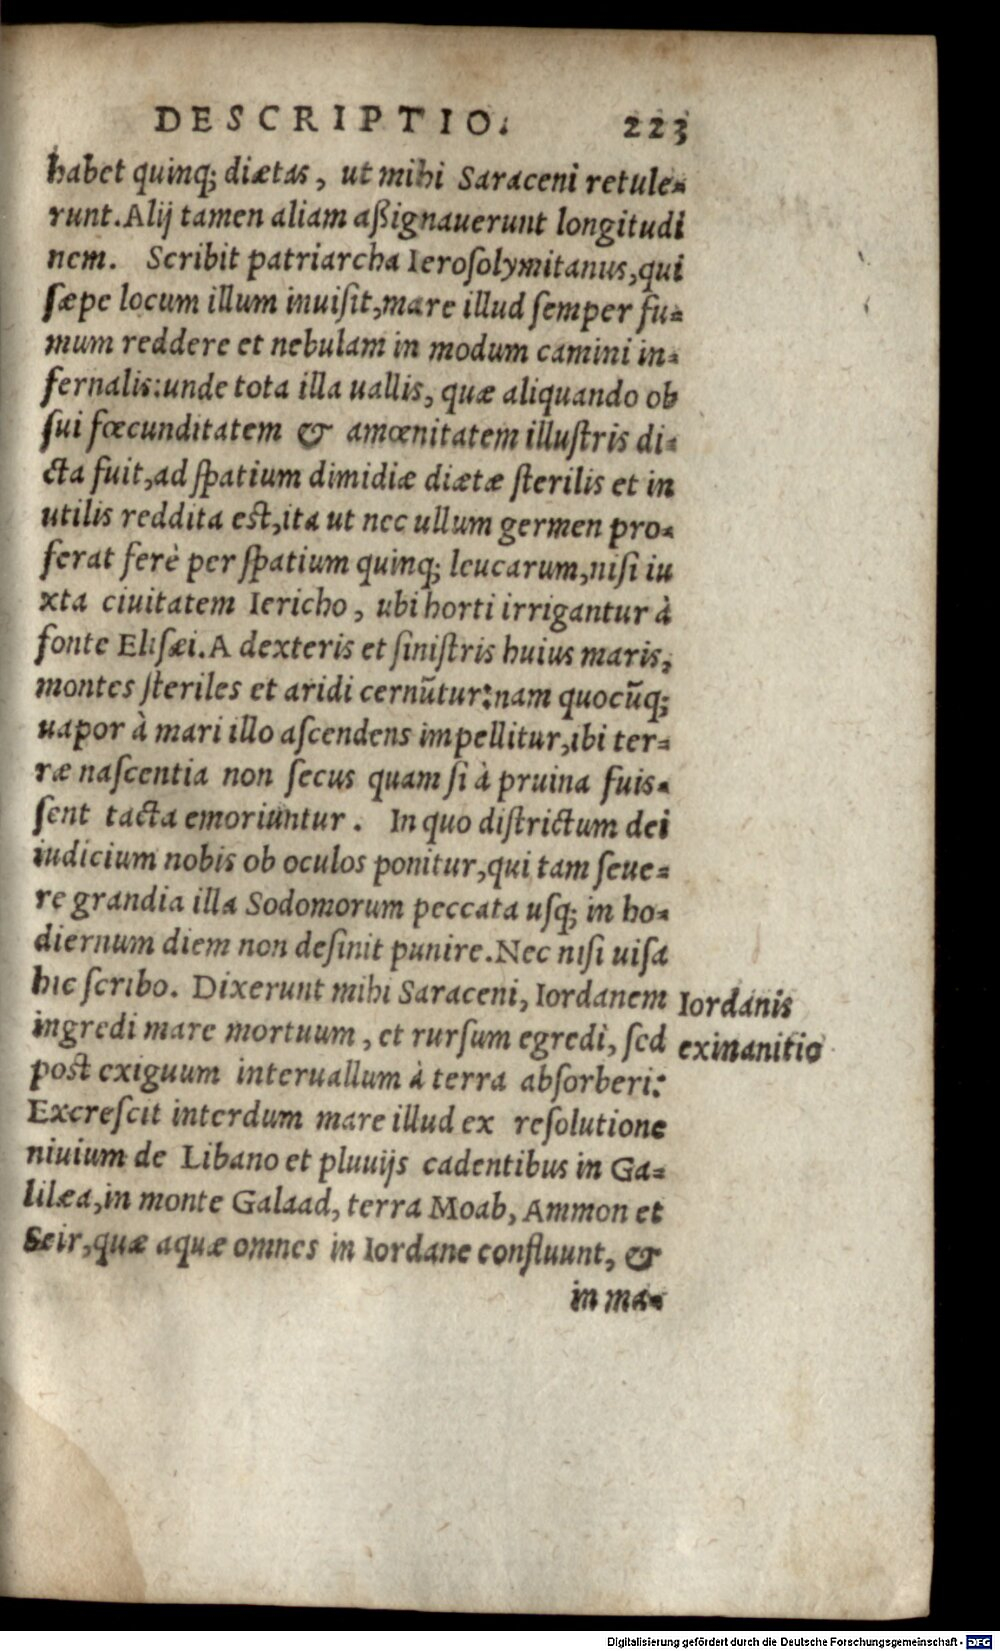 DESCRIPTIO. 223
habet quinq; diætas, ut mihi Saraceni retule-
runt. Alij tamen aliam aßignauerunt longitudi
nem. Scribit patriarcha Ieroſolymitanus, qui
ſæpe locum illum inuiſit, mare illud ſemper fu-
mum reddere et nebulam in modum camini in-
fernalis: unde tota illa uallis, quæ aliquando ob
ſui fœcunditatem & amœnitatem illuſtris di-
cta fuit, ad ſpatium dimidiæ diætæ ſterilis et in
utilis reddita eſt, ita ut nec ullum germen pro-
ferat ferè per ſpatium quinq; leucarum, niſi iu
xta ciuitatem Iericho, ubi horti irrigantur à
fonte Eliſæi. A dexteris et ſiniſtris huius maris,
montes ſteriles et aridi cernūtur: nam quocūq;
uapor à mari illo aſcendens impellitur, ibi ter-
ræ naſcentia non ſecus quam ſi à pruina fuiſ-
ſent tacta emoriuntur. In quo diſtrictum dei
iudicium nobis ob oculos ponitur, qui tam ſeue-
re grandia illa Sodomorum peccata uſq; in ho-
diernum diem non deſinit punire. Nec niſi uiſa
hic ſcribo. Dixerunt mihi Saraceni, Iordanem
ingredi mare mortuum, et rurſum egredi, ſed
poſt exiguum interuallum à terra abſorberi:
Excreſcit interdum mare illud ex reſolutione
niuium de Libano et pluuijs cadentibus in Ga-
lilæa, in monte Galaad, terra Moab, Ammon et
Seir, quæ aquæ omnes in Iordane confluunt, &
in ma-
Iordanis
exinanitio
Digitalisierung gefördert durch die Deutsche Forschungsgemeinschaft - DFG